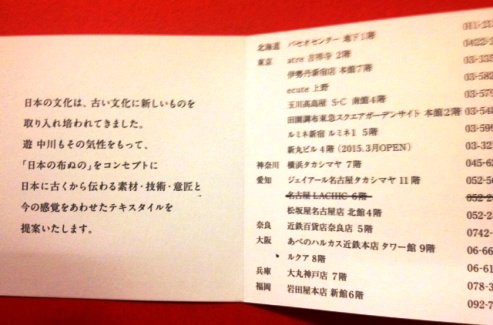 日本の文化は、古い文化に新しいものを
取り入れ培われてきました。
遊 中川もその気性をもって、
「日本の布ぬの」をコンセプトに
日本に古くから伝わる素材・技術・意匠と
今の感覚をあわせたテキスタイルを
提案いたします。
北海道 パセオセンター 地下1階
東京 atre 吉祥寺 2階
伊勢丹新宿店 本館7階
ecute 上野
玉川高島屋 S・C 南館4階
田園調布東急スクエアガーデンサイト 本館2階
ルミネ新宿 ルミネ1 5階
新丸ビル 4階 (2015.3月OPEN)
神奈川 横浜タカシマヤ 7階
愛知 ジェイアール名古屋タカシマヤ 11階
名古屋 LACHIC 6階
松坂屋名古屋店 北館4階
奈良 近鉄百貨店奈良店 5階
大阪 あべのハルカス近鉄本店 タワー館 9階
ルクア 8階
兵庫 大丸神戸店 7階
福岡 岩田屋本店 新館6階
03-335
03-582
03-579
03-548
03-53
03-32
045-6
052-5
052-2
052-2
0742-
06-66
06-61
078-3
092-7